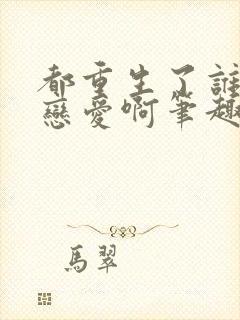 都重生了誰
戀愛啊筆趣
馬翠